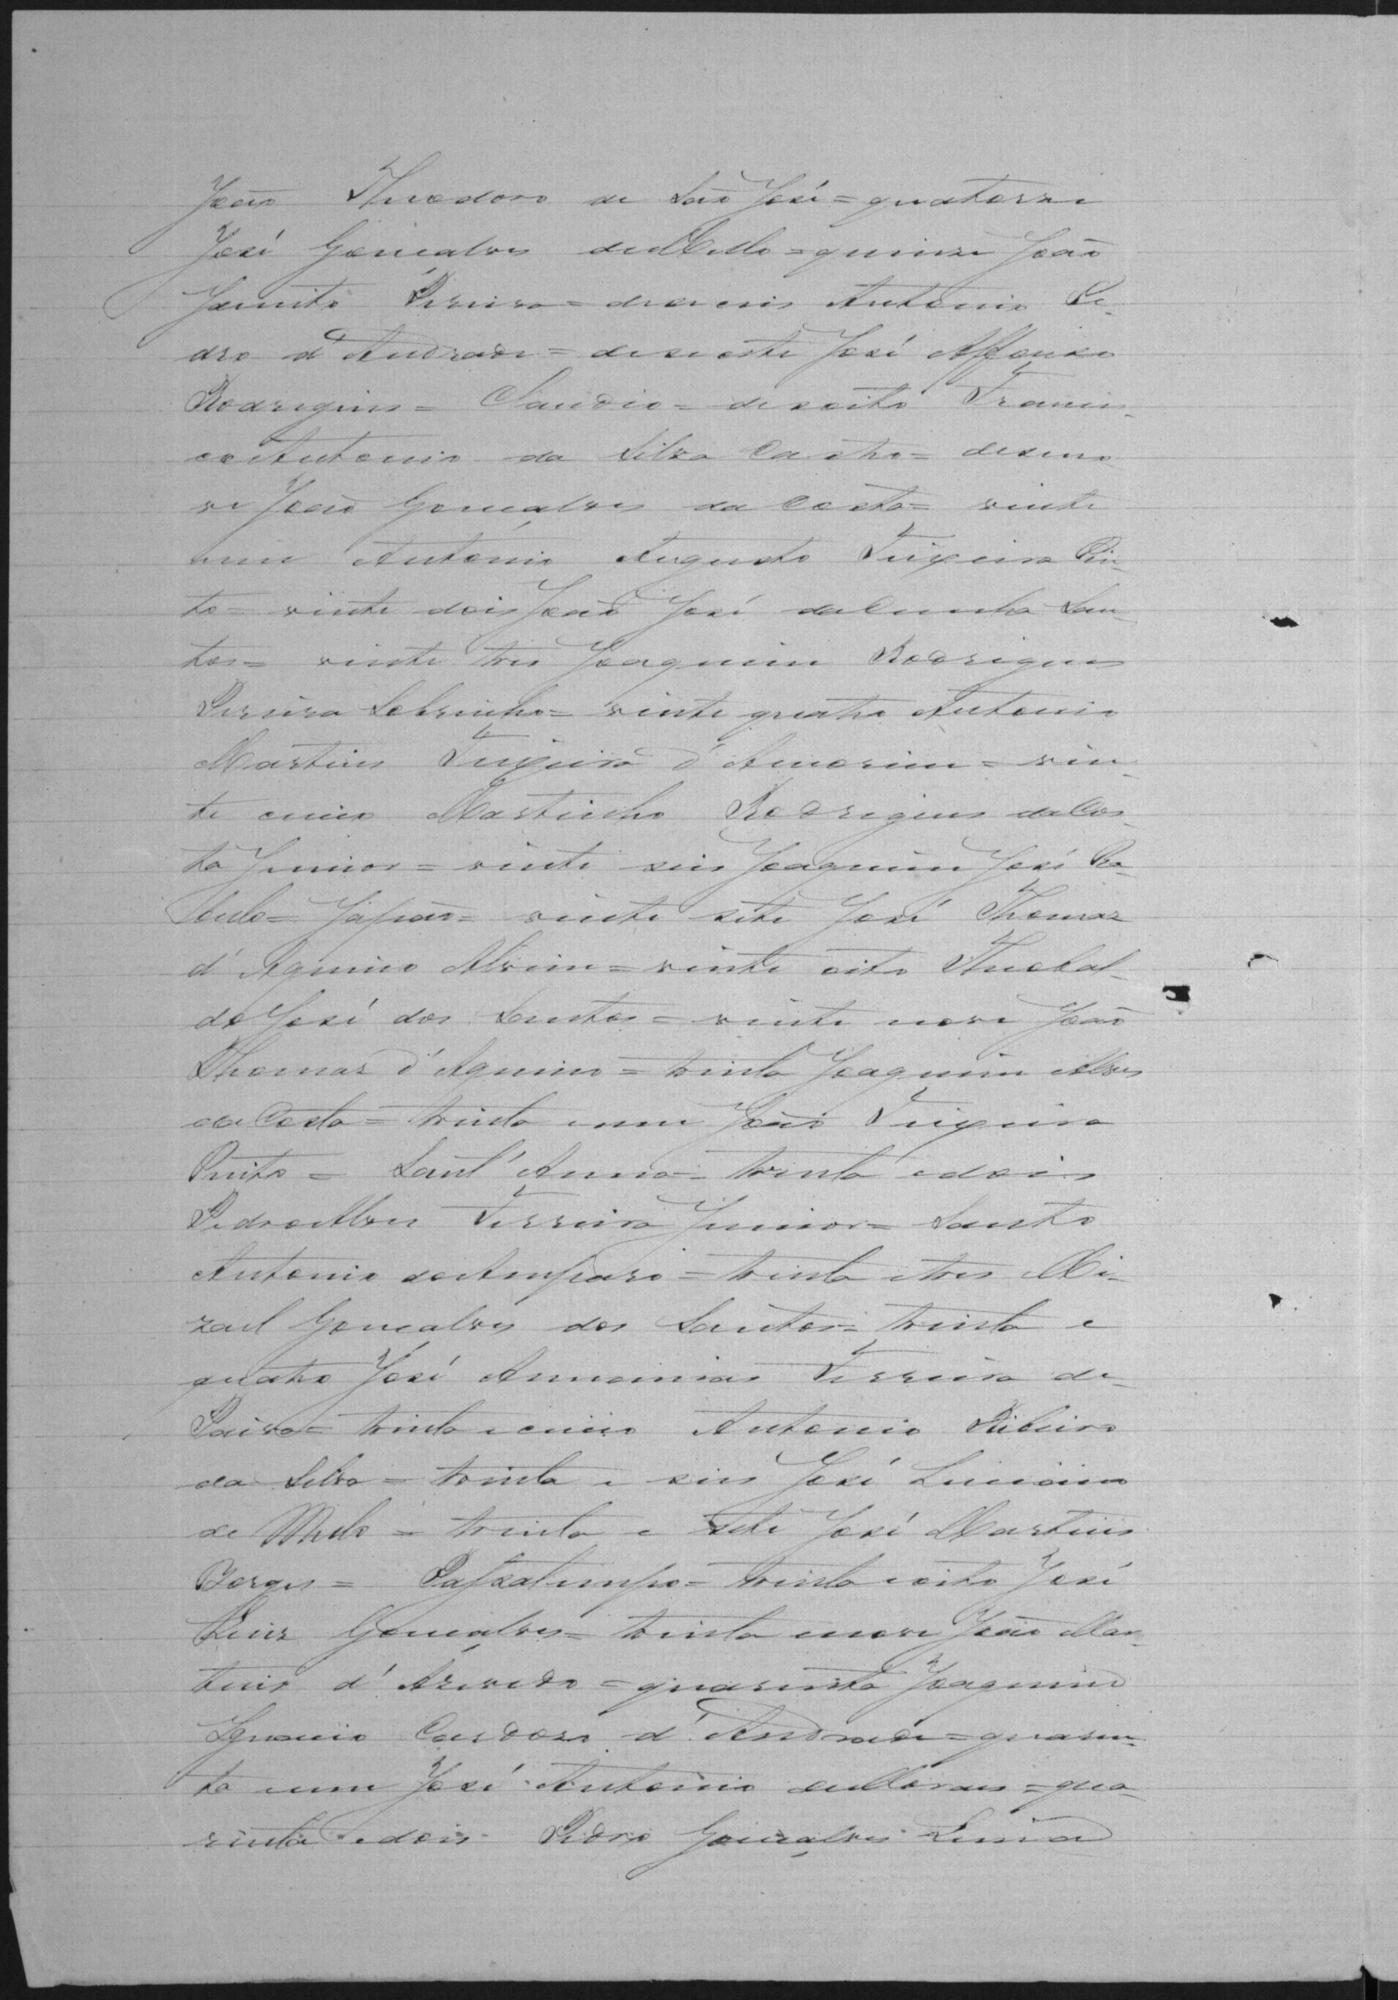 João Theodoro de São José = quatorze
José Gonçalves de Mello = quinze João
Jacinto Pereira = dezeseis Antonio Pe-
dro d'Andrade = desesete José Affonso
Rodrigues = Claudio = desoito Francis-
co Antonio da Silva Castro = deseno
ve João Gonçalves da Costa = vinte
um Antonio Augusto Teixeira Pin-
to = vinte dois João José da Cunha San-
tos = vinte tres Joaquim Rodrigues
Pereira Sobrinho = vinte quatro Antonio
Martins Teixeira d'Amorim = vin-
te cinco Martinho Rodrigues da Cos-
ta Junior = vinte seis Joaquim José
Japão = vinte sete José Thomaz
d'Aquino Alvim = vinte oito Theobal-
do José dos Santos = vinte nove João
Thomaz d'Aquino = trinta Joaquim Alves
da Costa = trinta e um João Teixeira
Pinto = Sant'Anna = trinta e dois
Pedro Alves Ferreira Junior = Santo
Antonio do Amparo = trinta e tres Mi-
zael Gonçalves dos Santos = trinta e
quatro José Annanias Ferreira de
Paiva = trinta e cinco Antonio Ribeiro
da Silva = trinta e seis José Luciano
de Mello = trinta e sete José Martins
Borges = Passatempo = trinta e oito José
Luiz Gonçalves = trinta e nove João Mar-
tins d'Azevedo = quarenta Joaquim
Ignacio Cardoso d'Andrade = quaren-
ta e um José Antonio de Moraes = qua-
renta e dois Pedro Gonçalves